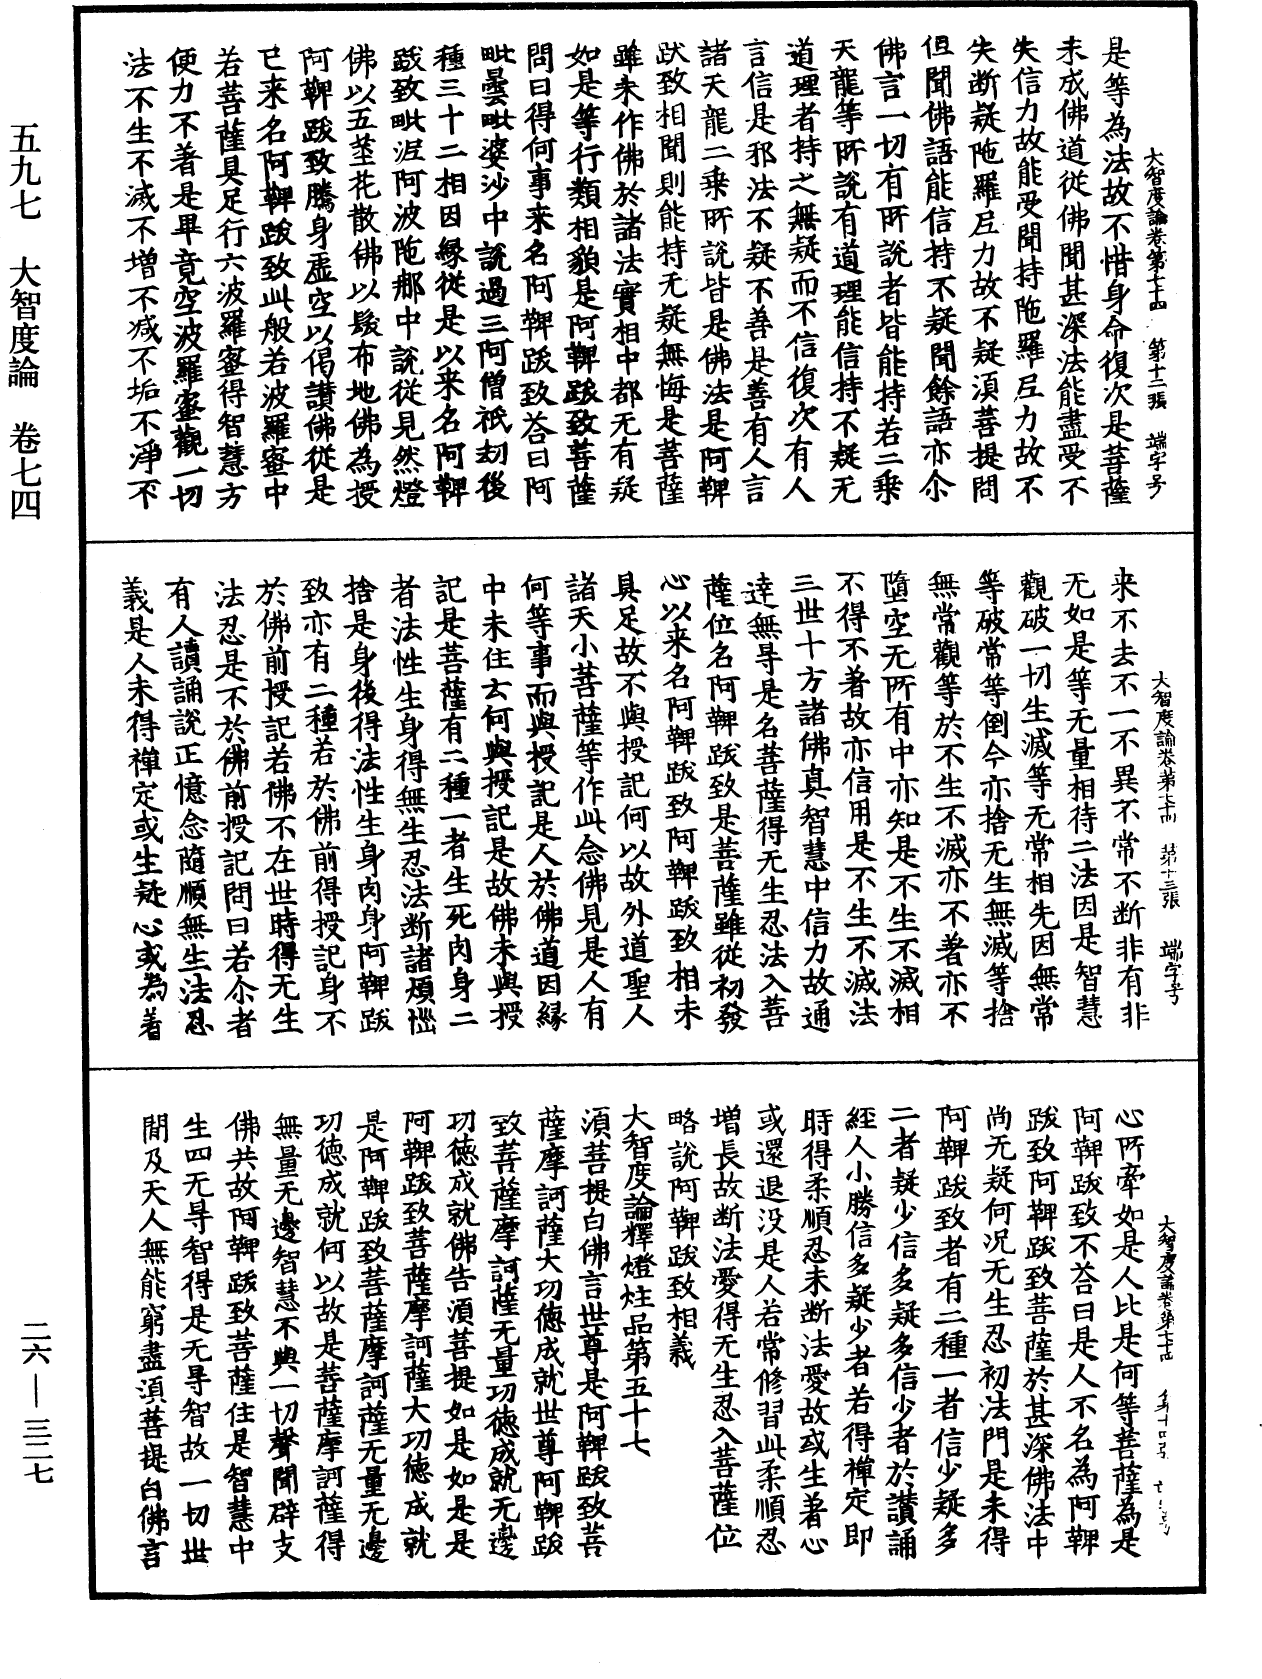 大智度論卷第七十四　第十二張　端字号
是等為法故不惜身命復次是菩薩
未成佛道從佛聞甚深法能盡受不
失信力故能受聞持陁羅尼力故不
失断疑陁羅尼力故不疑湏菩提問
但聞佛語能信持不疑聞餘語亦尒
佛言一切有所說者皆能持若二乗
天龍等所說有道理能信持不疑无
道理者持之無疑而不信復次有人
言信是邪法不疑不善是善有人言
諸天龍二乗所說皆是佛法是阿鞞
跋致相聞則能持无疑無悔是菩薩
雖未作佛於諸法實相中都无有疑
如是等行類相貌是阿鞞跋致菩薩
問曰得何事来名阿鞞跋致荅曰阿
毗曇毗婆沙中說過三阿僧祇劫後
種三十二相因緣從是以来名阿鞞
跋致毗泥阿波陁那中說從見然燈
佛以五莖花散佛以髮布地佛為授
阿鞞跋致騰身虛空以偈讃佛從是
已来名阿鞞跋致此般若波羅蜜中
若菩薩具足行六波羅蜜得智慧方
便力不著是畢竟空波羅蜜觀一切
法不生不滅不增不減不垢不淨不
大智度論卷第七十四　第十三張　端字号
来不去不一不異不常不断非有非
无如是等无量相待二法因是智慧
觀破一切生滅等无常相先因無常
等破常等倒今亦捨无生無滅等捨
無常觀等於不生不滅亦不著亦不
墮空无所有中亦知是不生不滅相
不得不著故亦信用是不生不滅法
三世十方諸佛真智慧中信力故通
達無㝵是名菩薩得无生忍法入菩
薩位名阿鞞跋致是菩薩雖從初發
心以来名阿鞞跋致阿鞞跋致相未
具足故不與授記何以故外道聖人
諸天小菩薩等作此念佛見是人有
何等事而與授記是人於佛道因緣
中未住云何與授記是故佛未與授
記是菩薩有二種一者生死肉身二
者法性生身得無生忍法断諸煩惱
捨是身後得法性生身肉身阿鞞跋
致亦有二種若於佛前得授記身不
於佛前授記若佛不在世時得无生
法忍是不於佛前授記問曰若尒者
有人讀誦說正憶念隨順無生法忍
義是人未得禪定或生疑心或為著
大智度論卷第七十四　第十四張
心所牽如是人比是何等菩薩為是
阿鞞跋致不荅曰是人不名為阿鞞
跋致阿鞞跋致菩薩於甚深佛法中
尚无疑何況无生忍初法門是未得
阿鞞跋致者有二種一者信少疑多
二者疑少信多疑多信少者於讃誦
經人小勝信多疑少者若得禪定即
時得柔順忍未断法愛故或生著心
或還退没是人若常修習此柔順忍
增長故断法愛得无生忍入菩薩位
略說阿鞞跋致相義
大智度論釋燈炷品第五十七
湏菩提白佛言世尊是阿鞞跋致菩
薩摩訶薩大功德成就世尊阿鞞跋
致菩薩摩訶薩无量功德成就无邊
功德成就佛告湏菩提如是如是是
阿鞞跋致菩薩摩訶薩大功德成就
是阿鞞跋致菩薩摩訶薩无量无邊
功德成就何以故是菩薩摩訶薩得
無量无邊智慧不與一切聲聞辟支
佛共故阿鞞跋致菩薩住是智慧中
生四无㝵智得是无㝵智故一切世
間及天人無能窮盡湏菩提白佛言
五九七　大智度論　卷七四
二六—三二七